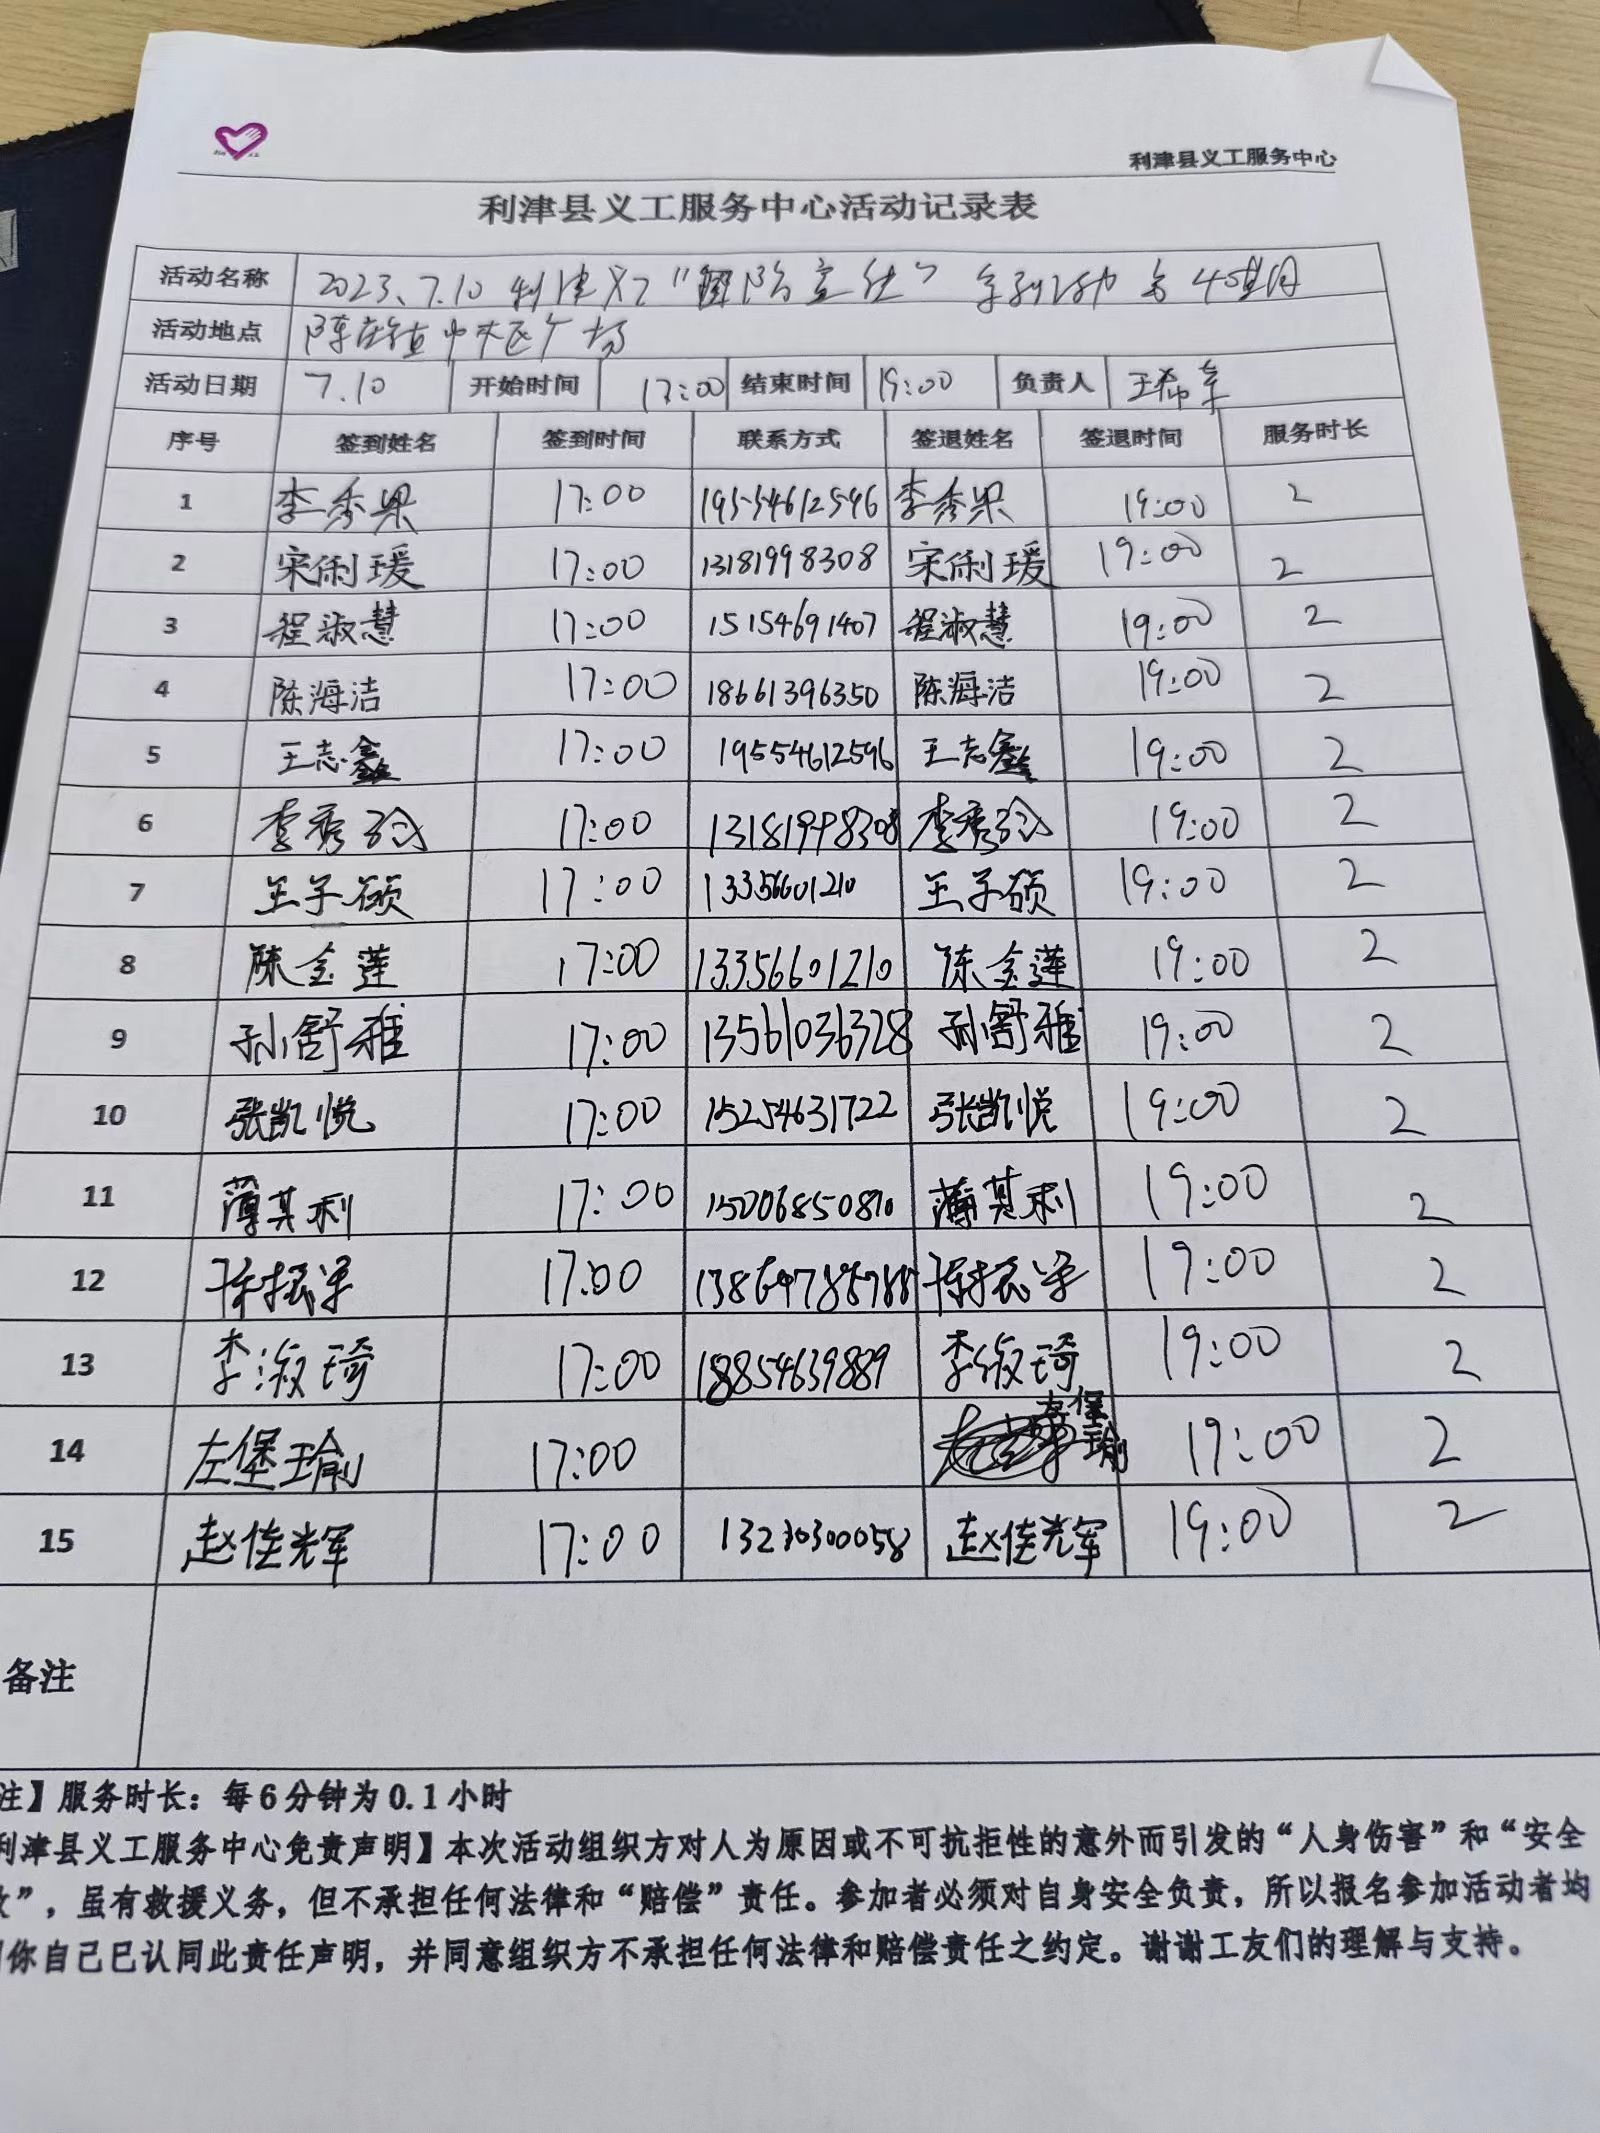 利津县义工服务中心
利津县义工服务中心活动记录表
活动名称 2023、7.10 利津义工“消防宣传”系列活动
活动地点 陈庄镇中
活动日期 7.10 开始时间 17:00 结束时间 19:00 负责人 王希
序号 签到姓名 签到时间 联系方式 签退姓名 签退时间 服务时长
1 李秀果 17:00 19554612596 李秀果 19:00 2
2 宋俐瑗 17:00 13181998308 宋俐瑗 19:00 2
3 程淑慧 17:00 15154691407 程淑慧 19:00 2
4 陈海洁 17:00 18661396350 陈海洁 19:00 2
5 王志鑫 17:00 19554612596 王志鑫 19:00 2
6 李秀 17:00 13181998308 李秀 19:00 2
7 王子硕 17:00 13356601210 王子硕 19:00 2
8 陈金莲 17:00 13356601210 陈金莲 19:00 2
9 孙舒雅 17:00 13561036328 孙舒雅 19:00 2
10 张凯悦 17:00 15254631722 张凯悦 19:00 2
11 薄其利 17:00 19:00 2
薄其利
12 17:00 19:00 2
13 李淑琦 17:00 18854639889 李淑琦 19:00 2
14 左堡瑜 17:00 左堡瑜 19:00 2
15 赵佳辉 17:00 13230300058 赵佳辉 19:00 2
备注
注】服务时长：每6分钟为0.1小时
利津县义工服务中心免责声明】本次活动组织方对人为原因或不可抗拒性的意外而引发的“人身伤害”和“安全
”，虽有救援义务，但不承担任何法律和“赔偿”责任。参加者必须对自身安全负责，所以报名参加活动者均
你自己已认同此责任声明，并同意组织方不承担任何法律和赔偿责任之约定。谢谢工友们的理解与支持。